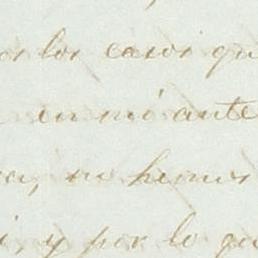 los casos qu
en mi ante
no hemos
y por lo qu